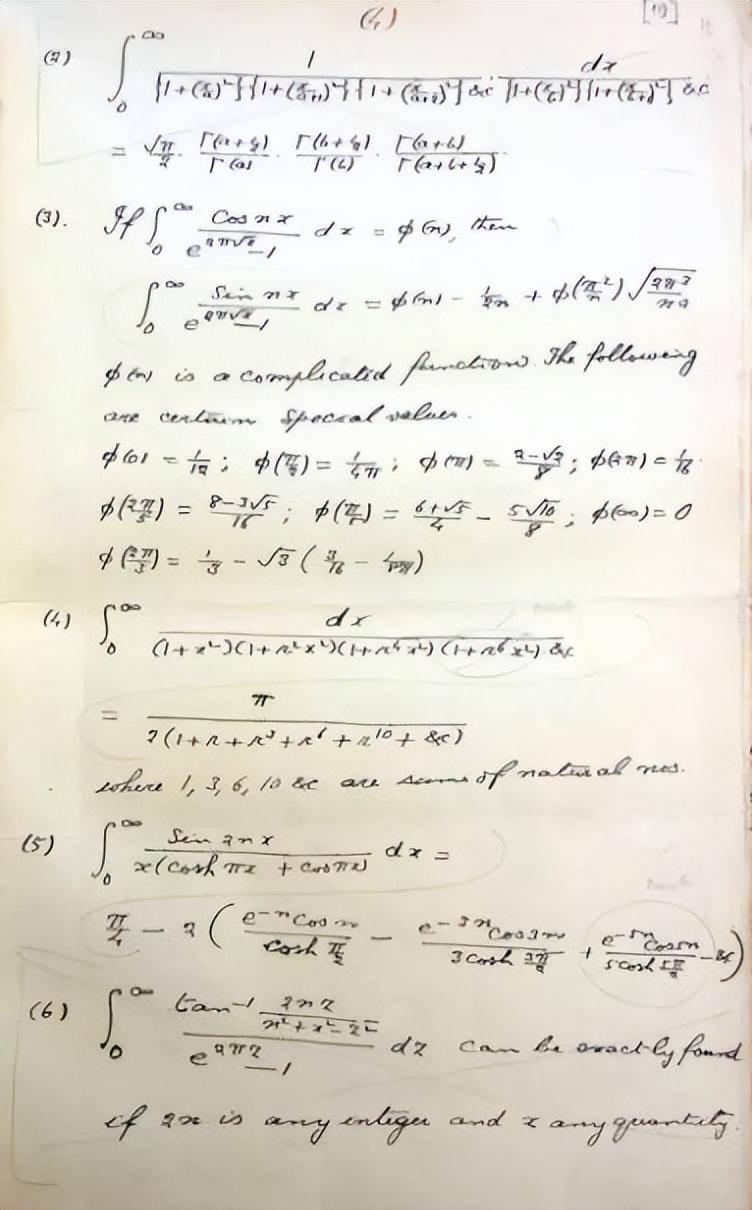 (4)
[11]
(2) ∫₀^∞ 1/({1+(x/a)²}{1+(x/(a+1))²}{1+(x/(a+2))²} &c) · dx/({1+(x/b)²}{1+(x/(b+1))²} &c)
= √π/2 · Γ(a+½)/Γ(a) · Γ(b+½)/Γ(b) · Γ(a+b)/Γ(a+b+½)
(3). If ∫₀^∞ Cos nx/(e^(2π√x) − 1) dx = φ(n), then
∫₀^∞ Sin nx/(e^(2π√x) − 1) dx = φ(n) − 1/2n + φ(π²/n) √(2π³/n³)
φ(n) is a complicated function. The following
are certain special values.
φ(0) = 1/12 ; φ(π/2) = 1/4π ; φ(π) = (2−√2)/8 ; φ(2π) = 1/16 .
φ(2π/5) = (8−3√5)/16 ; φ(π/5) = (6+√5)/4 − 5√10/8 ; φ(∞) = 0
φ(2π/3) = 1/3 − √3 (3/16 − 1/8π)
(4) ∫₀^∞ dx/((1+x²)(1+r²x²)(1+r⁴x²)(1+r⁶x²) &c)
= π/(2(1+r+r³+r⁶+r¹⁰+&c))
where 1, 3, 6, 10 &c are sums of natural nos.
(5) ∫₀^∞ Sin 2nx/(x(cosh πx + cos πx)) dx =
π/4 − 2 (e^(−n) cos n/cosh π/2 − e^(−3n) cos 3n/(3 cosh 3π/2) + e^(−5n) cos 5n/(5 cosh 5π/2) − &c)
(6) ∫₀^∞ tan⁻¹ (2nz/(n²+x²−z²))/(e^(2πz) − 1) dz can be exactly found
if 2n is any integer and x any quantity.